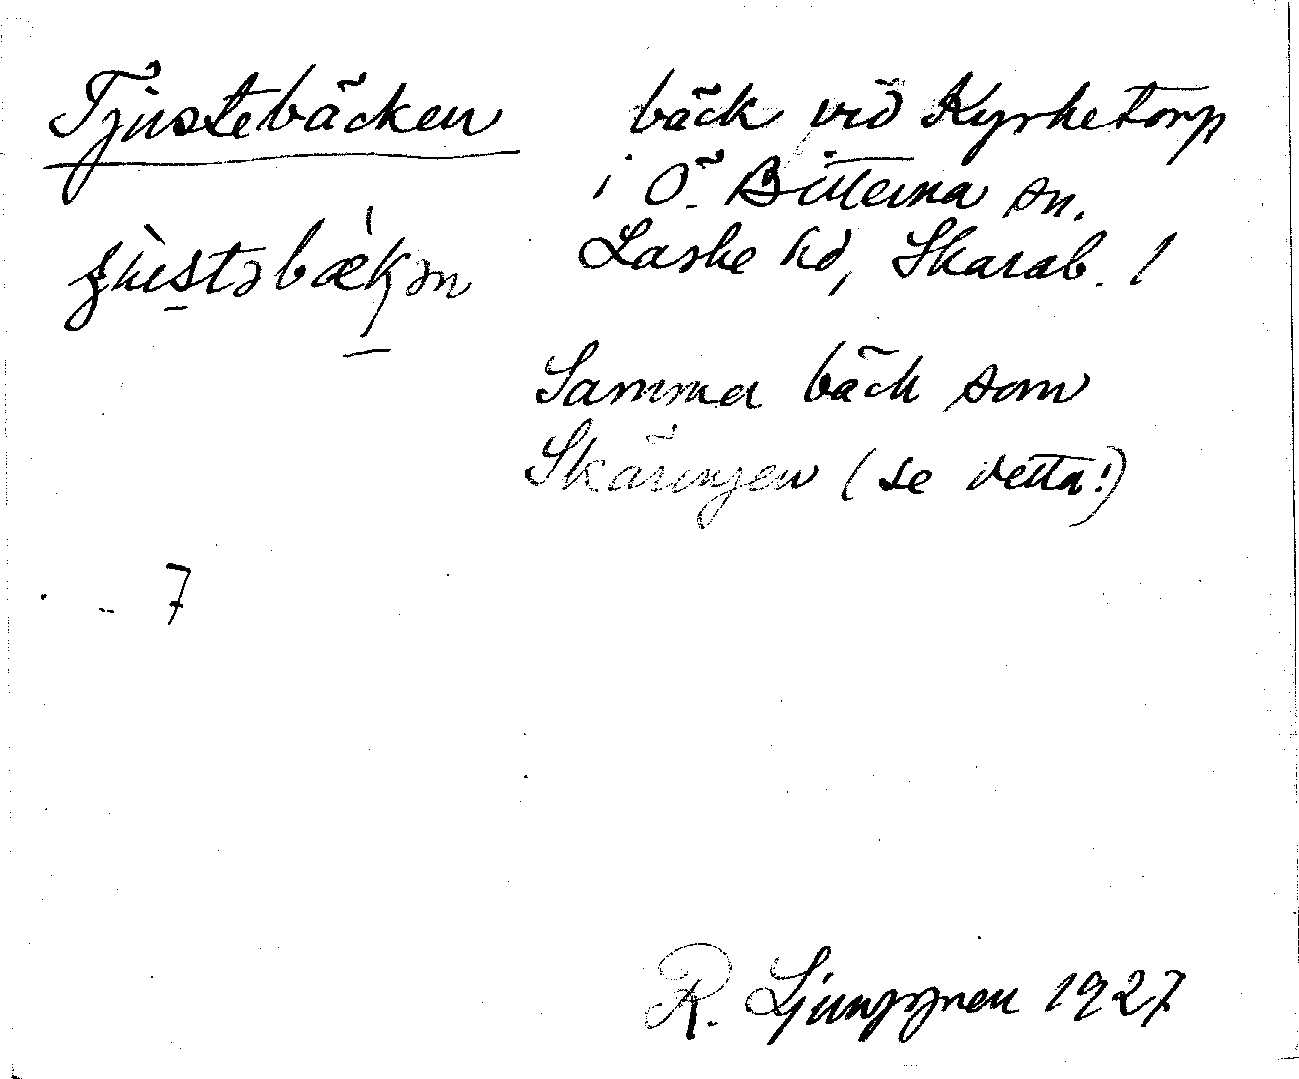 Tjustebäcken
bäck vid Kyrketorp
i Ö. Bitterna sn.
Laske hd, Skarab. l
Samma bäck som
Skäringen (se detta!)
7
R. Ljunggren 1927